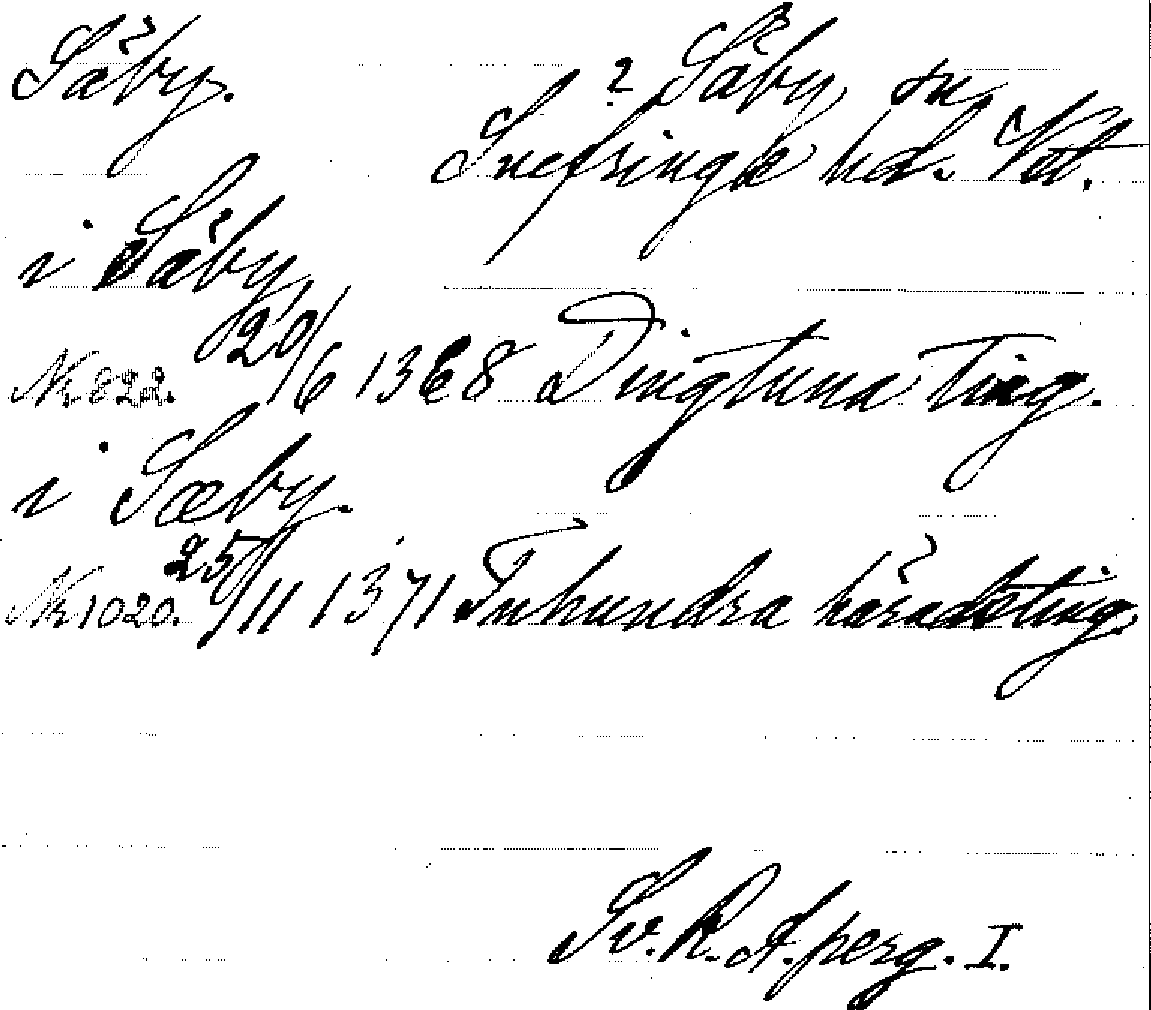 Säby.
? Säby, sn
Snefringe hd. Vstl.
i Säby,
Nr. 822. 20/6 1368 Dingtuna ting.
i Sæby.
Nr 1020. 25/11 1371 Tuhundra häradsting.
Sv. R. A. perg. I.